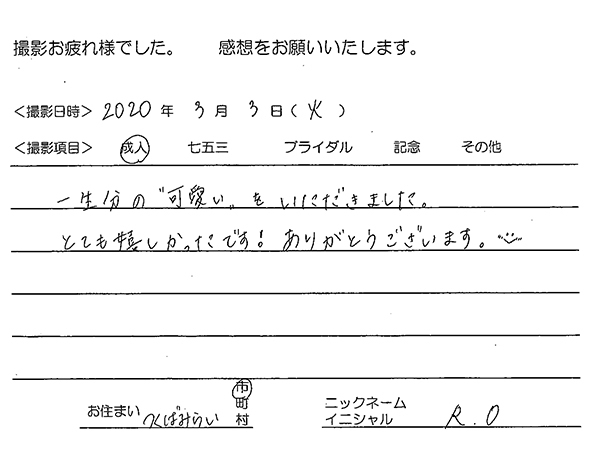 撮影お疲れ様でした。　　感想をお願いいたします。
＜撮影日時＞ 2020 年 3 月 3 日（火）
＜撮影項目＞ 成人 七五三 ブライダル 記念 その他
一生分の"可愛い"をいただきました。
とても嬉しかったです! ありがとうございます。
お住まい つくばみらい 市 町 村
ニックネーム
イニシャル R.O